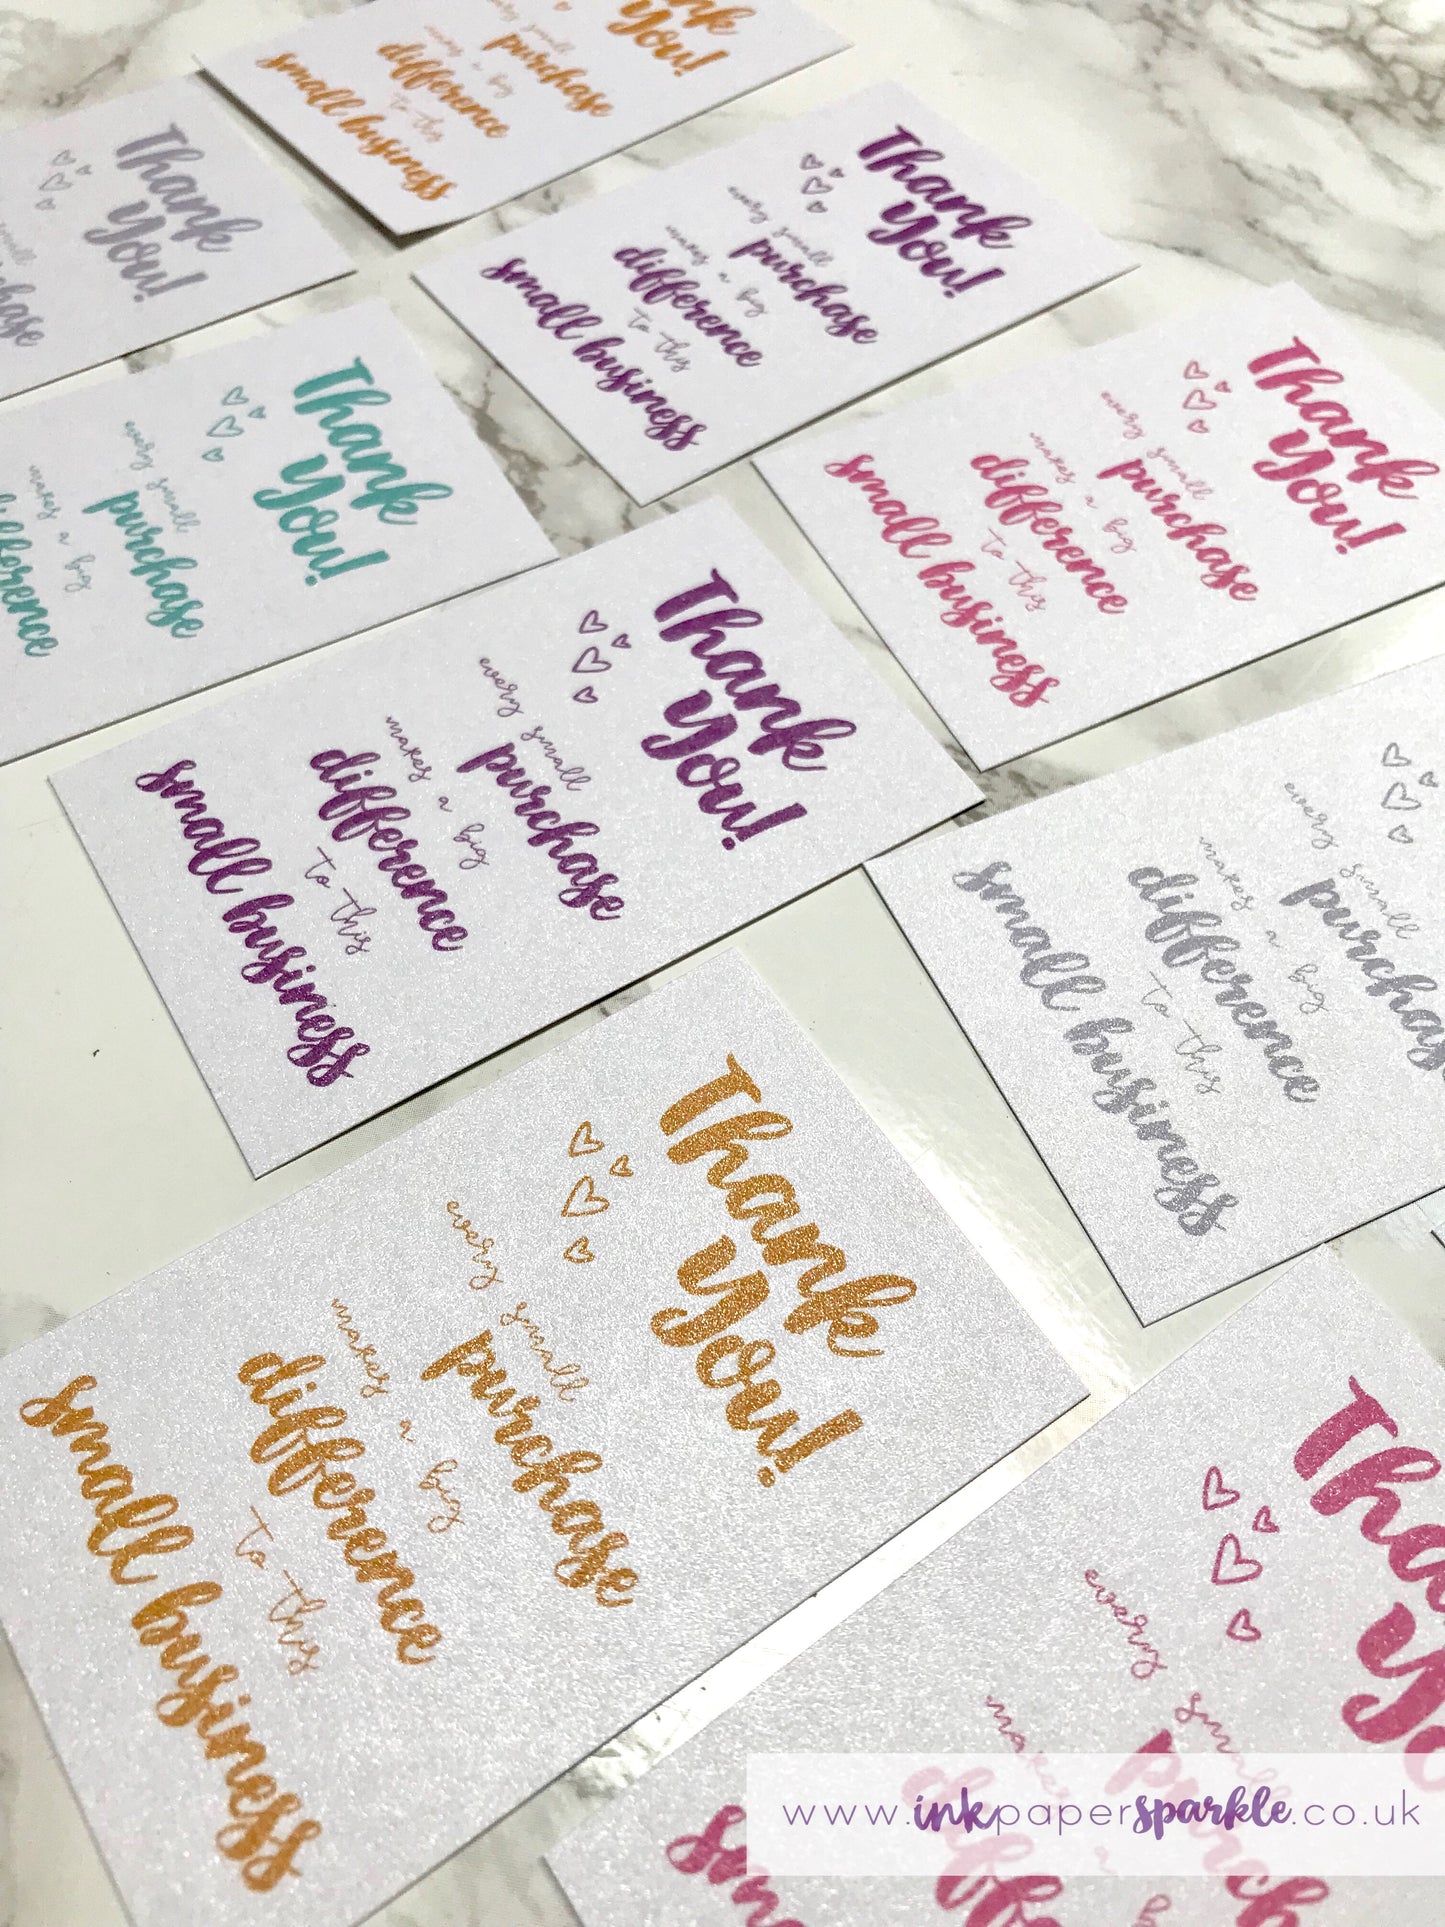 ank
You!
small
purchase
makes a big
difference
to this
small business
Thank
You!
small
Thank
You!
every small
purchase
makes a big
difference
to this
small business
Thank
You!
every small
purchase
makes a big
difference
Thank
You!
every small
purchase
makes a big
difference
to this
small business
Thank
You!
every small
purchase
makes a big
difference
to this
small business
every small
purchase
makes a big
difference
to this
small business
Thank
You!
every small
purchase
makes a big
difference
to this
small business
every small
makes
www.inkpapersparkle.co.uk